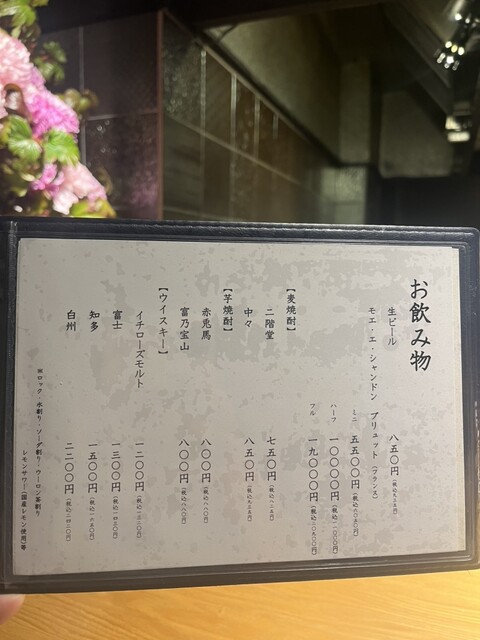 お飲み物
生ビール 八五〇円(税込九三五円)
モエ・エ・シャンドン ブリュット(フランス)
ミニ 五五〇〇円(税込六〇五〇円)
ハーフ 一〇〇〇〇円(税込一一〇〇〇円)
フル 一九〇〇〇円(税込二〇九〇〇円)
【麦焼酎】
二階堂 七五〇円(税込八二五円)
中々 八五〇円(税込九三五円)
【芋焼酎】
赤兎馬 八〇〇円(税込八八〇円)
富乃宝山 八〇〇円(税込八八〇円)
【ウイスキー】
イチローズモルト 一二〇〇円(税込一三二〇円)
富士 一三〇〇円(税込一四三〇円)
知多 一五〇〇円(税込一六五〇円)
白州 二二〇〇円(税込二四二〇円)
※ロック・水割り・ソーダ割り・ウーロン茶割り
レモンサワー(国産レモン使用)等